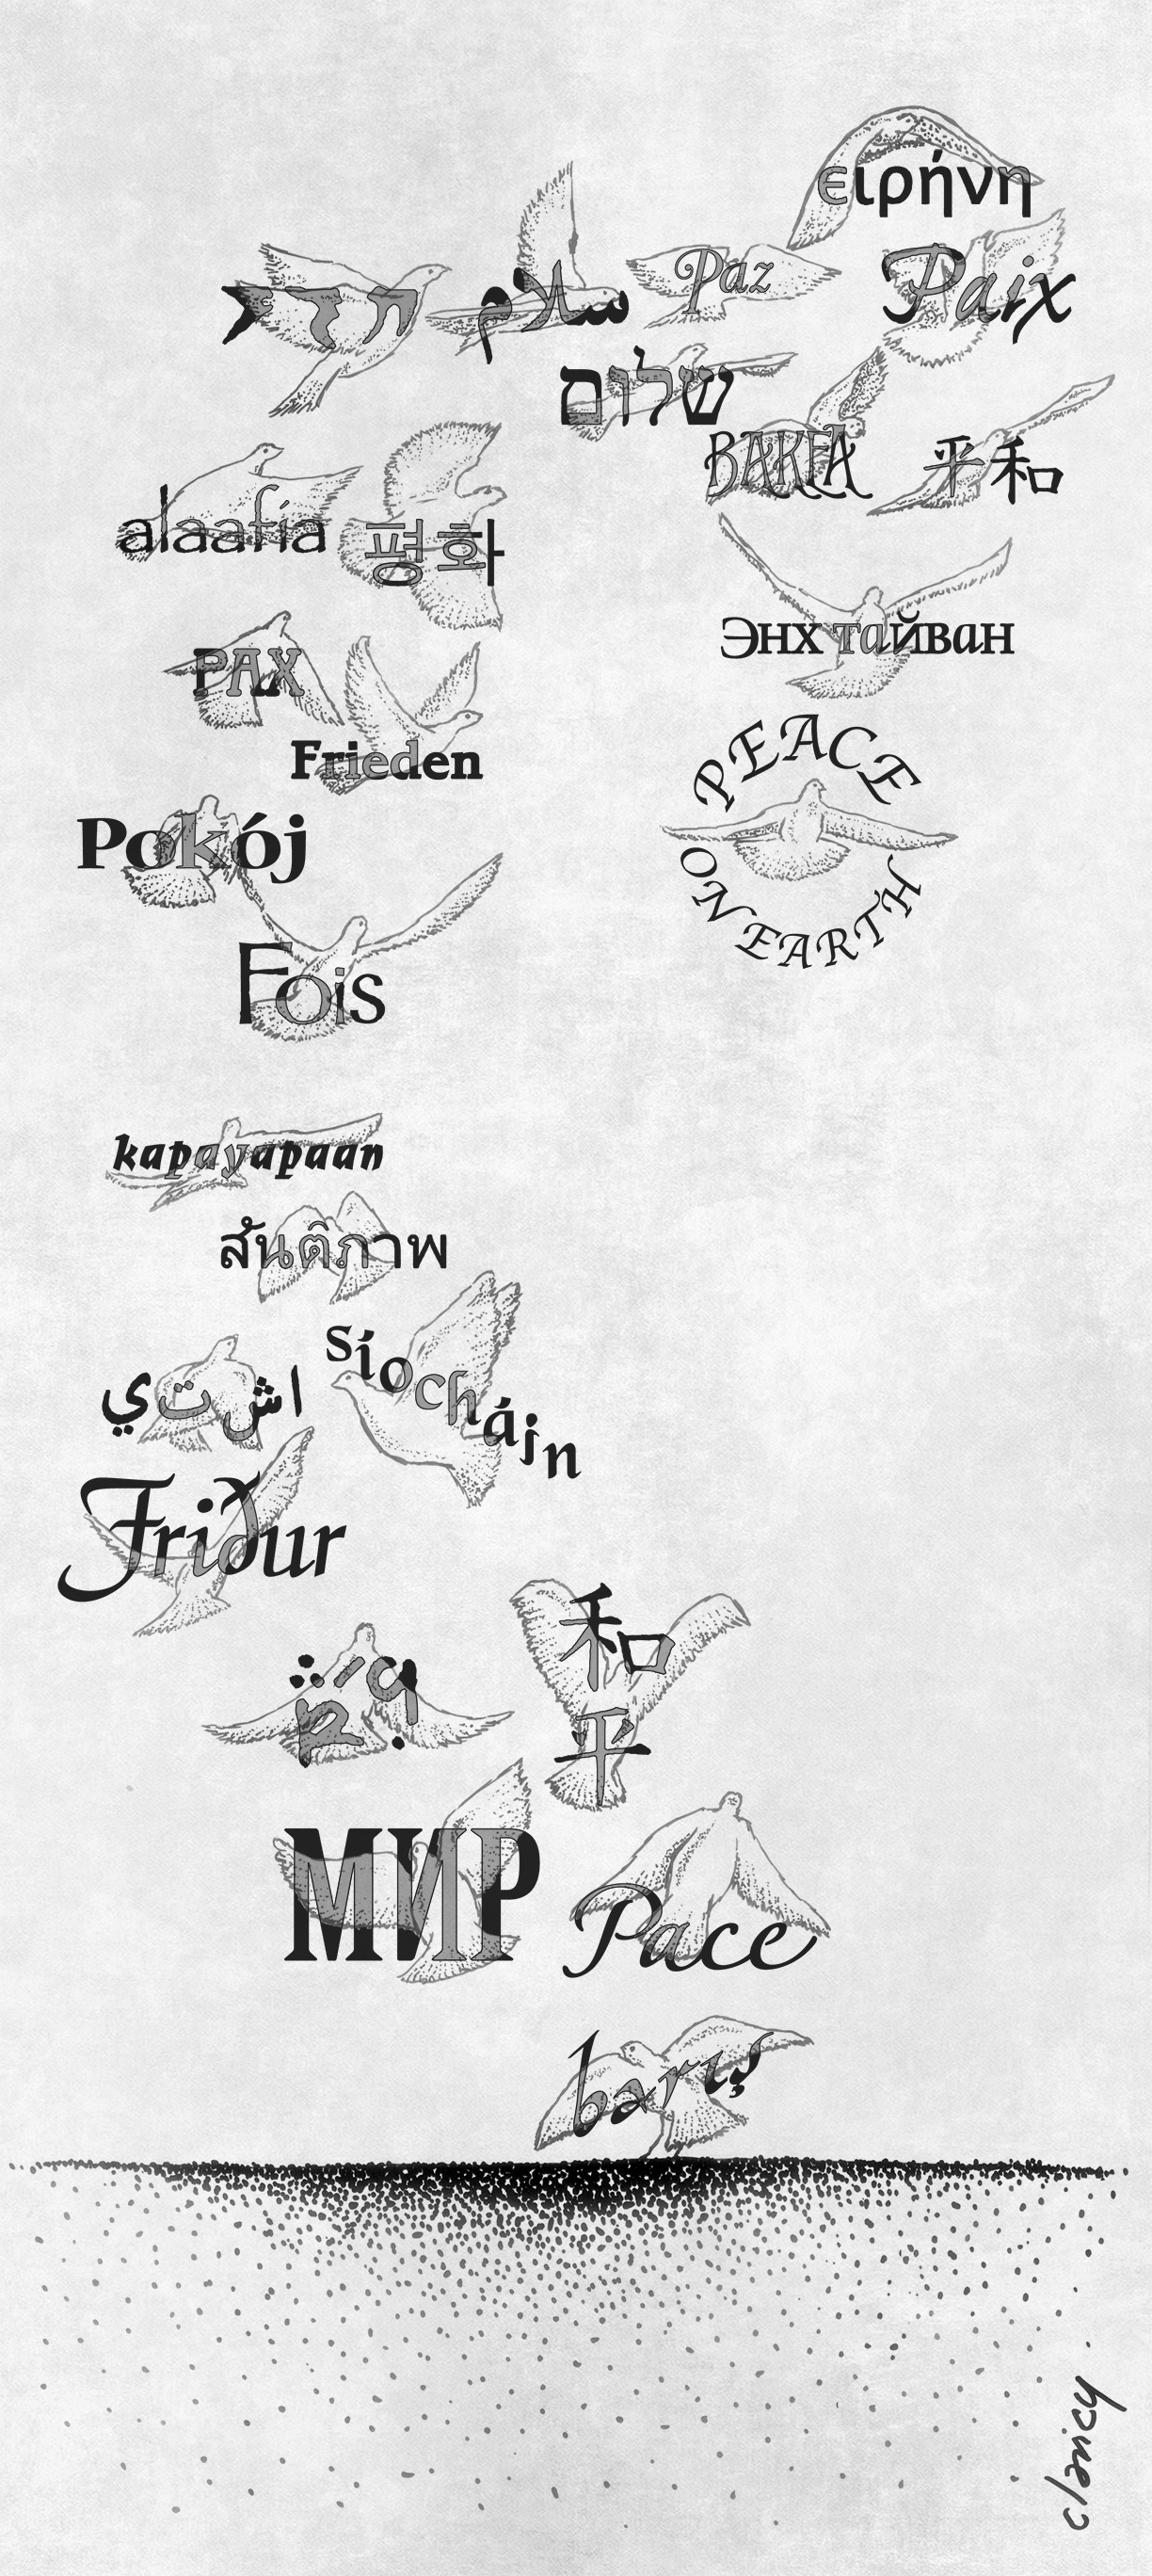 ειρήνη
Paz
سلام
Paix
שלום
BAKEA
平和
alaafia
평화
Энх тайван
PAX
Frieden
PEACE
ON EARTH
Pokój
Fois
kapayapaan
สันติภาพ
síocháin
اشتي
Friður
和
平
МИР
Pace
barış
clancy